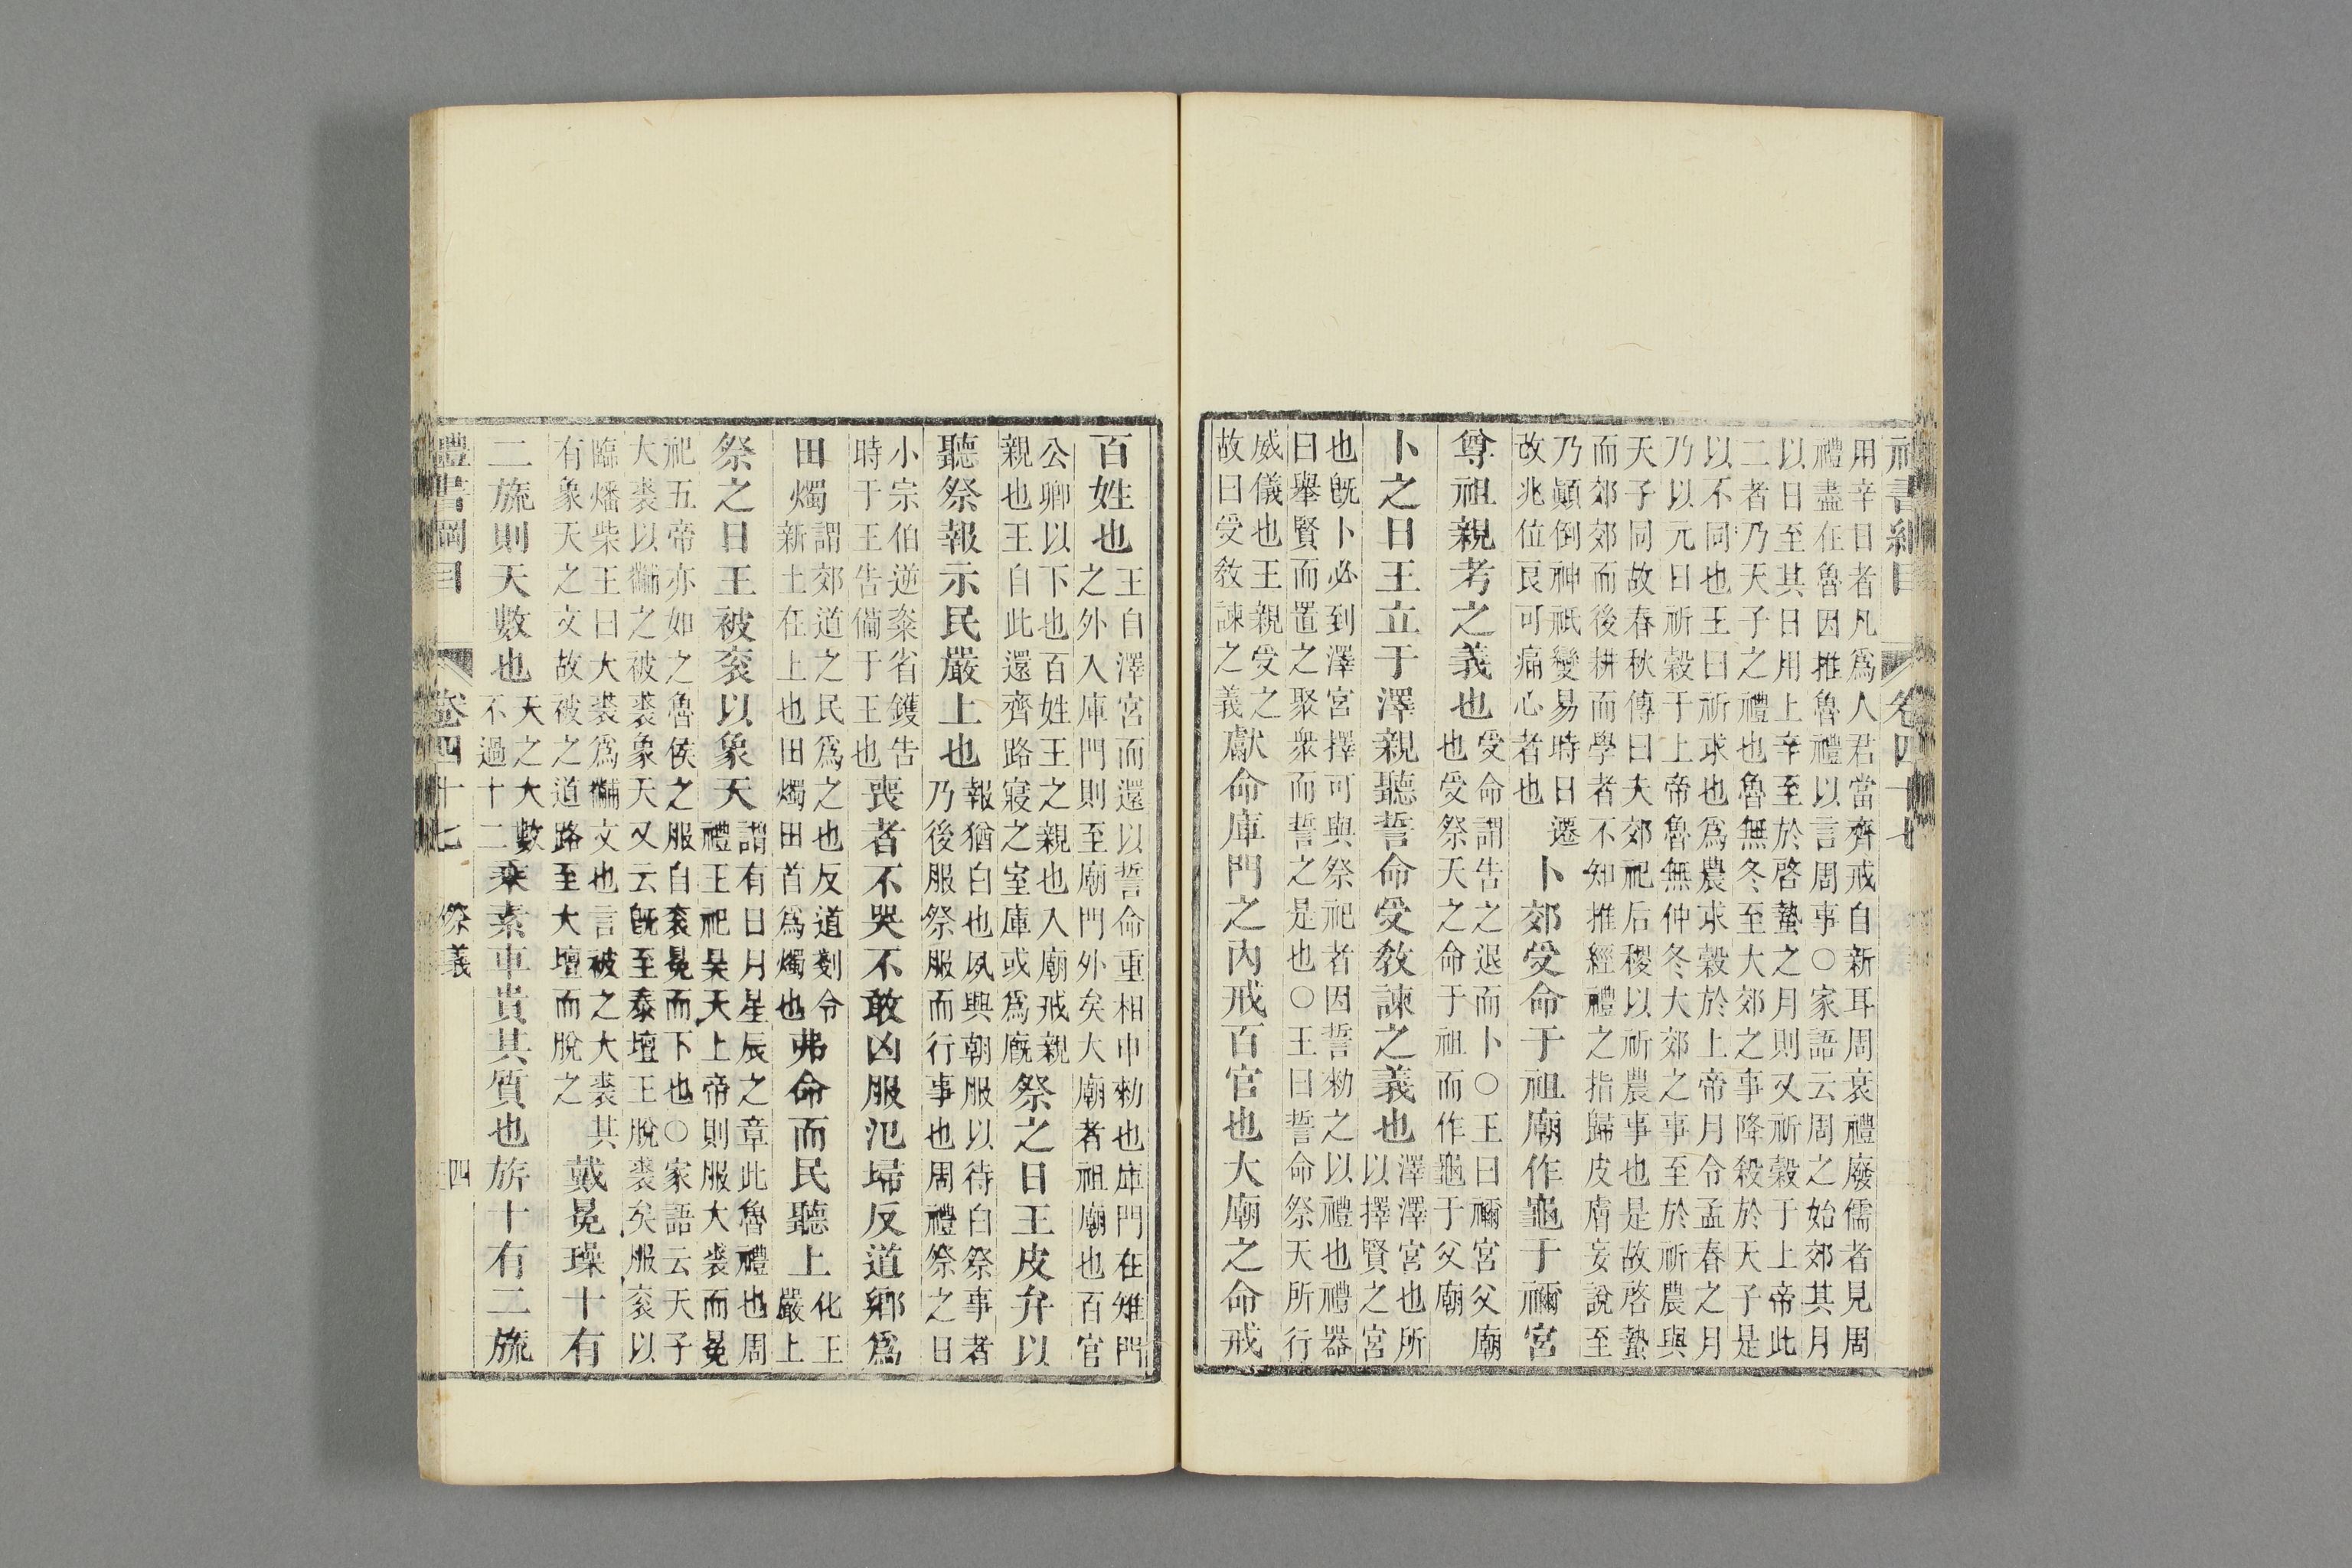 用辛日者凡爲人君當齊戒自新耳周衰禮廢儒者見周
禮盡在魯因推魯禮以言周事○家語云周之始郊其月
以日至其日用上辛至於啓蟄之月則又祈穀于上帝此
二者乃天子之禮也魯無冬至大郊之事降殺於天子是
以不同也王曰祈求也爲農求穀於上帝月令孟春之月
乃以元日祈穀于上帝魯無仲冬大郊之事至於祈農與
天子同故春秋傳曰夫郊祀后稷以祈農事也是故啓蟄
而郊郊而後耕而學者不知推經禮之指歸皮膚妄說至
乃顚倒神祇變易時日遷
改兆位良可痛心者也
卜郊受命于祖廟作龜于禰宮
尊祖親考之義也
受命謂告之退而卜○王曰禰宮父廟
也受祭天之命于祖而作龜于父廟
卜之日王立于澤親聽誓命受敎諫之義也
澤澤宮也所
以擇賢之宮
也旣卜必到澤宮擇可與祭祀者因誓勑之以禮也禮器
曰舉賢而置之聚衆而誓之是也○王曰誓命祭天所行
威儀也王親受之
故曰受敎諫之義
獻命庫門之內戒百官也大廟之命戒
百姓也
王自澤宮而還以誓命重相申勑也庫門在雉門
之外入庫門則至廟門外矣大廟者祖廟也百官
公卿以下也百姓王之親也入廟戒親
親也王自此還齊路寢之室庫或爲廐
祭之日王皮弁以
聽祭報示民嚴上也
報猶白也夙興朝服以待白祭事者
乃後服祭服而行事也周禮祭之日
小宗伯逆粢省鑊告
時于王告備于王也
喪者不哭不敢凶服氾埽反道鄉爲
田燭
謂郊道之民爲之也反道剗令
新土在上也田燭田首爲燭也
弗命而民聽上
化王
嚴上
祭之日王被衮以象天
謂有日月星辰之章此魯禮也周
禮王祀昊天上帝則服大裘而冕
祀五帝亦如之魯侯之服自衮冕而下也○家語云天子
大裘以黼之被裘象天又云旣至泰壇王脫裘矣服衮以
臨燔柴王曰大裘爲黼文也言被之大裘其
有象天之文故被之道路至大壇而脫之
戴冕璪十有
二旒則天數也
天之大數
不過十二
乘素車貴其質也旂十有二旒
禮書綱目
卷四十七
祭義
四